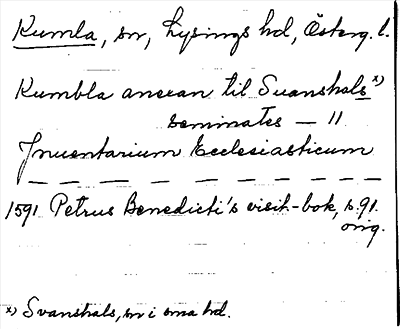 Kumla, sn, Lysings hd, Österg. l.
Kumbla anexan til Suanshals x)
seminates — 11
Jnuentarium Ecclesiasticum
1591 Petrus Benedicti's visit-bok, s. 91.
orig.
x) Svanshals, sn i sma hd.